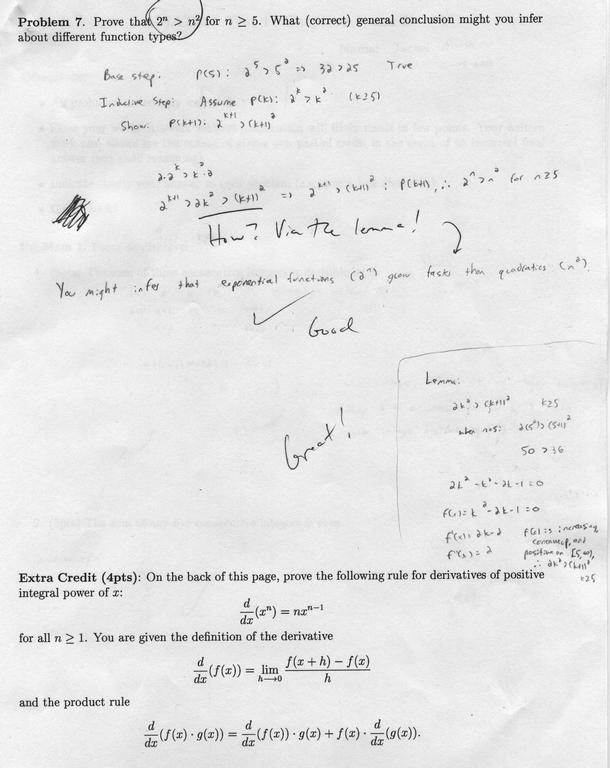 Problem 7. Prove that 2^n > n^2 for n ≥ 5. What (correct) general conclusion might you infer
about different function types?
Base step. P(5): 2^5 > 5^2 => 32 > 25 True
Inductive Step: Assume P(k): 2^k > k^2 (k≥5)
Show: P(k+1): 2^{k+1} > (k+1)^2
2·2^k > k^2·2
2^{k+1} > 2k^2 > (k+1)^2 => 2^{k+1} > (k+1)^2 : P(k+1), ∴ 2^n > n^2 for n≥5
How? Via the lemma!
You might infer that exponential functions (2^n) grow faster than quadratics (n^2).
✓ Good
Great!
Lemma:
2k^2 > (k+1)^2 k≥5
when n=5: 2(5^2) > (5+1)^2
50 > 36
2k^2 - k^2 - 2k - 1 = 0
f(x) = k^2 - 2k - 1 = 0
f'(x) = 2k-2 f(x) is increasing,
f''(x) = 2 concave up, and
positive on [5,∞),
∴ 2k^2 > (k+1)^2
k≥5
Extra Credit (4pts): On the back of this page, prove the following rule for derivatives of positive
integral power of x:
d/dx (x^n) = nx^{n−1}
for all n ≥ 1. You are given the definition of the derivative
d/dx (f(x)) = lim_{h→0} f(x + h) − f(x) / h
and the product rule
d/dx (f(x) · g(x)) = d/dx (f(x)) · g(x) + f(x) · d/dx (g(x)).